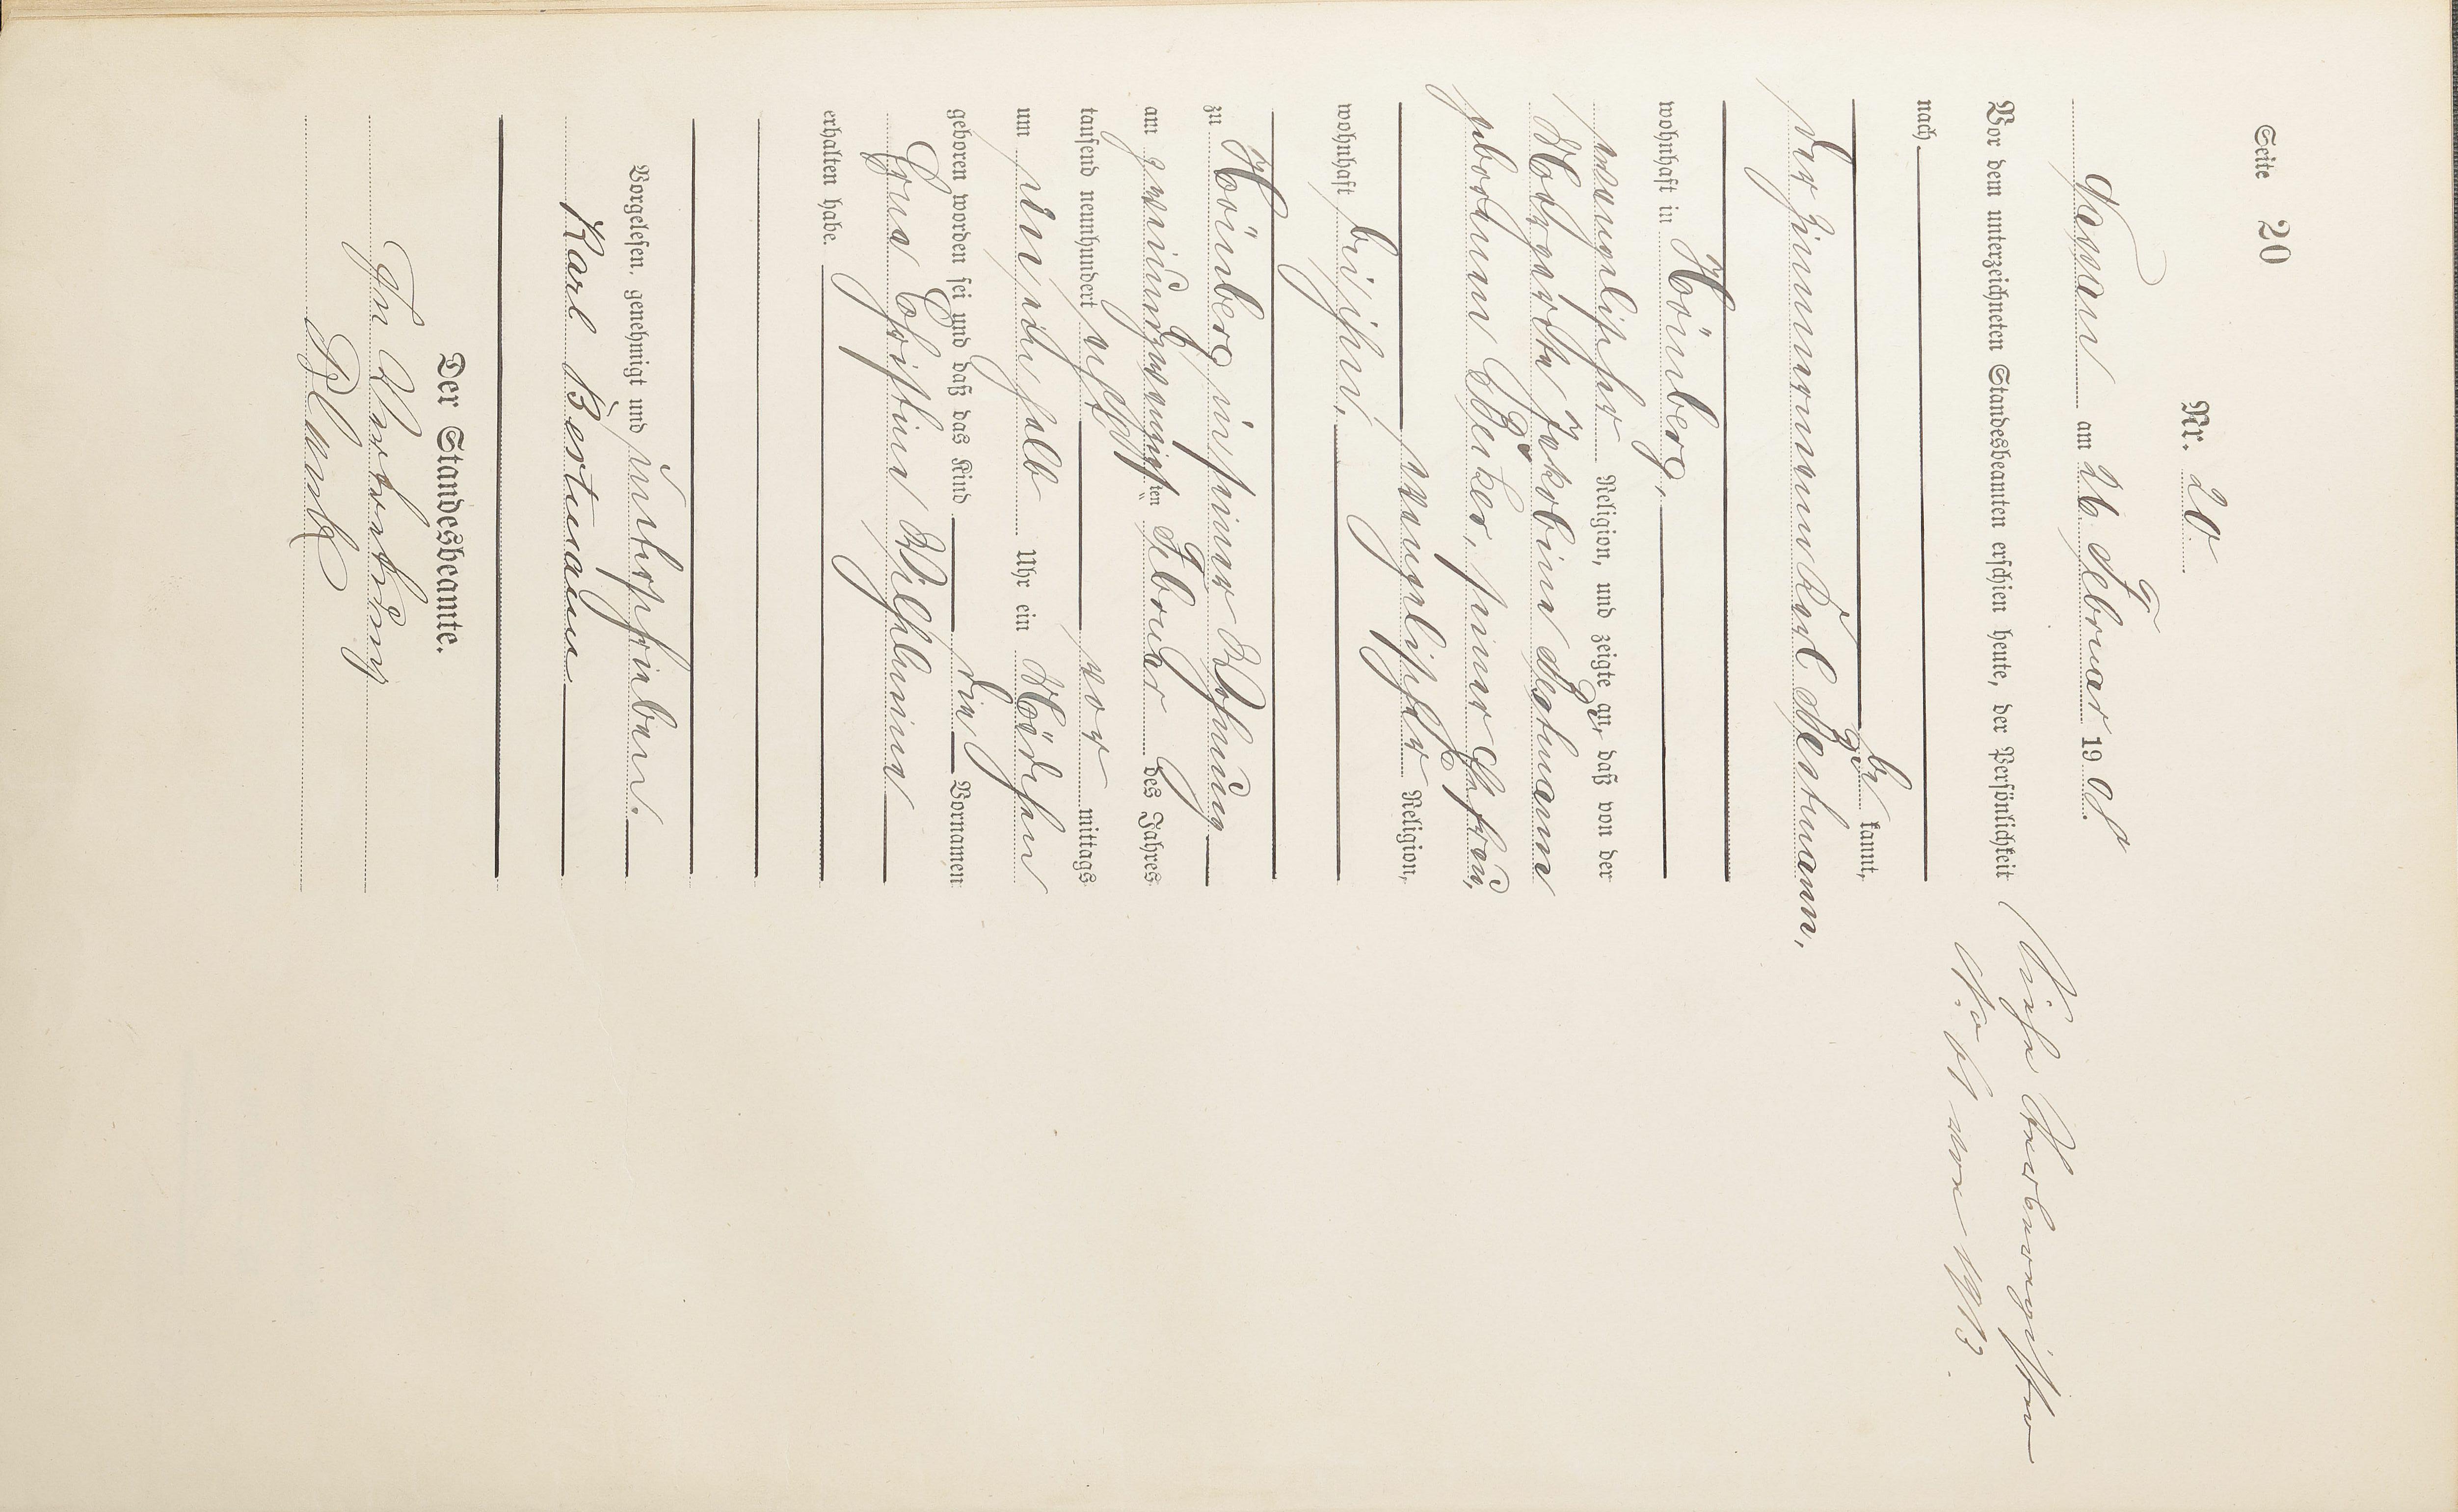 Seite 20
Nr. 20.
Nassau am 26. Februar 1908.
Vor dem unterzeichneten Standesbeamten erschien heute, der Persönlichkeit
nach
be kannt,
der Zimmermann Karl Bertmann,
wohnhaft in Hömberg,
evangelischer Religion, und zeigte an, daß von der
Margarethe Jakobine Bertmann
geborenen Becker, seiner Ehefrau,
evangelischer Religion,
wohnhaft bei ihm,
zu Hömberg in seiner Wohnung
am zweiundzwanzigsten Februar des Jahres
tausend neunhundert acht vor mittags
um halb Uhr ein Mädchen
geboren worden sei und daß das Kind die Vornamen
Erna Christine Wilhelmine
erhalten habe.
Vorgelesen, genehmigt und unterschrieben.
Karl Bertmann
Der Standesbeamte.
In Vertretung
Siehe
No von 1913.